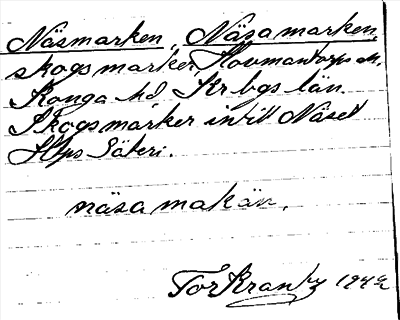 Näsmarken, Näsamarken,
skogsmarker Hovmantorps sn,
Konga hd, Kr bgs län
Skogsmarker intill Näset
H-ps Säteri.
näsamakän.
Tor Kranky 1942